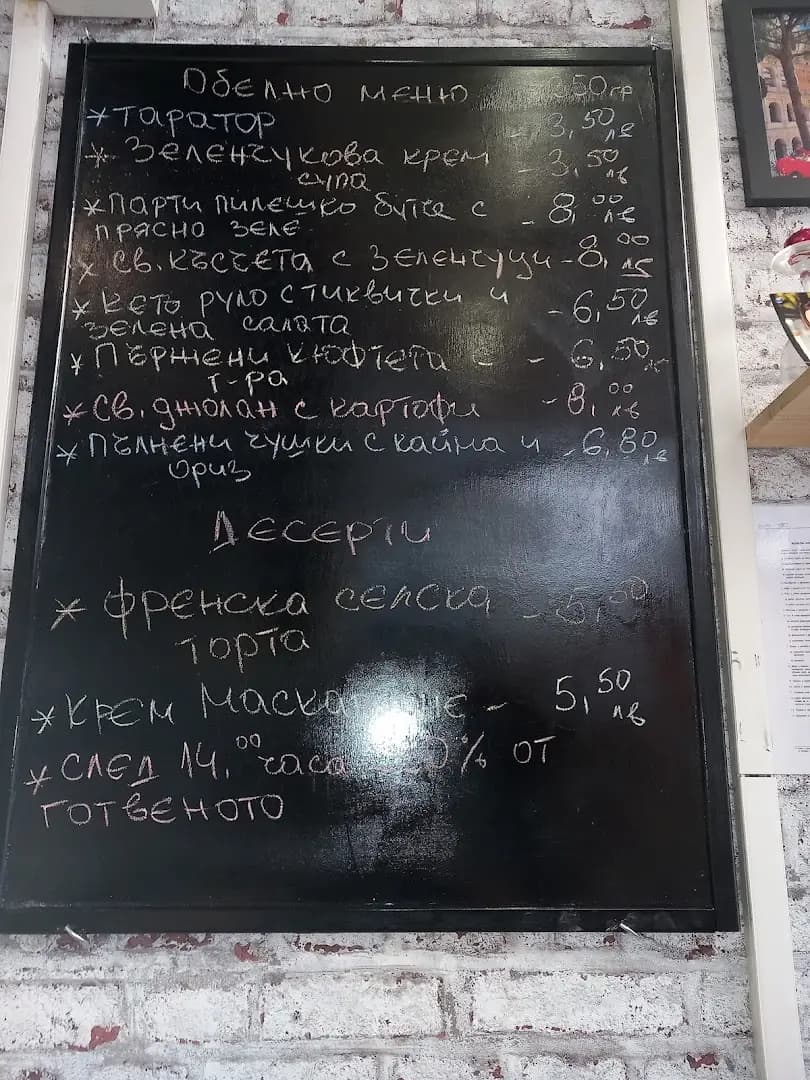 Обедно меню 350гр
*Таратор - 3,50 лв
* Зеленчукова крем - 3,50 лв
супа
*Парти пилешко бутче с - 8,00 лв
прясно зеле
* Св. късчета с зеленчуци - 8,00 лв
*Кето руло с тиквички и - 6,50 лв
зелена салата
*Пържени кюфтета - - 6,50 лв
т-ра
*Св. джолан с картофи - 8,00 лв
*Пълнени чушки с кайма и - 6,80 лв
ориз
Десерти
* Френска селска - 5,50
торта
*Крем Маскарпоне - 5,50 лв
*След 14,00 часа -20% от
готвеното